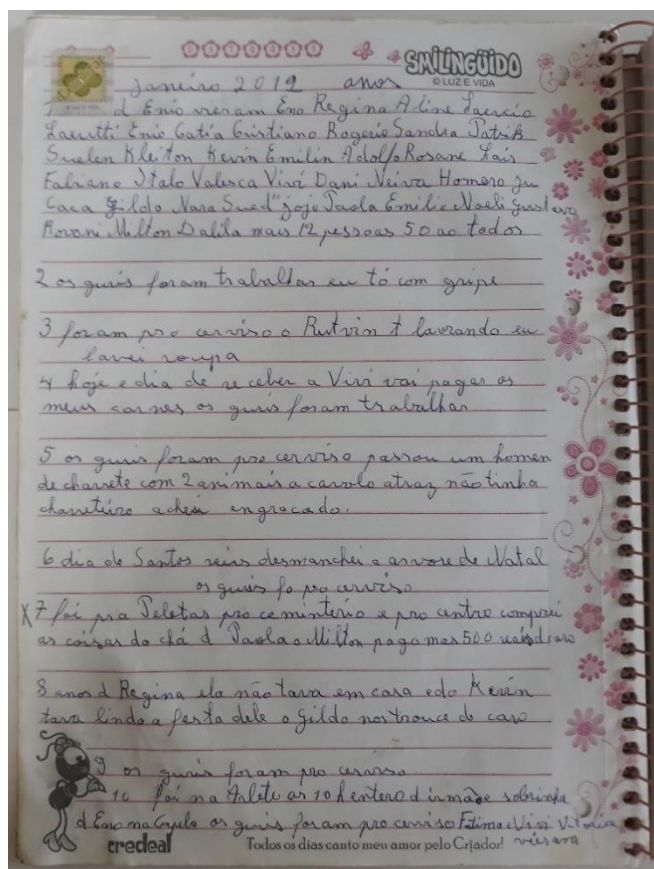 SMILINGÜIDO
© LUZ E VIDA
janeiro 2019 anos
1 d Enio vieram Eno Regina Aline Laercio
Laeutti Enio Catia Cristiano Rogerio Sandra Patrik
Suelen Kleiton Kevin Emilin Adolfo Rosane Lais
Fabiano Italo Valesca Vivi Dani Neiva Homero Ju
Caca Gildo Nara Sued" joje Paola Emilie Noeli Gustavo
Rovani Milton Dalila mais 12 pessoas 50 ao todos
2 os guris foram trabalhar eu tô com gripe
3 foram pro cerviso o Rutvin t lavrando eu
lavei roupa
4 hoje e dia de receber a Vivi vai pagar os
meus carnes os guris foram trabalhar
5 os guris foram pro cerviso passou um homen
de charrete com 2 animais a cavalo atraz não tinha
charreteiro achei engracado.
6 dia de Santos reis desmanchei a arvore de Natal
os guris fo pro cerviso
X7 foi pra Pelotas pro ceminterio e pro centro comprei
as coizas do chá d Paola o Milton pago mas 500 reais d caro
8 anos d Regina ela não tava em casa e do Kevin
tava linda a festa dele o Gildo nos trouce de caro
9 os guris foram pro cerviso
10 foi na Arlete as 10 h entero d irmã e sobrinha
d Eno na Capela os guris foram pro cerviso Fatima e Vivi Vitoria
vieram
credeal
Todos os dias canto meu amor pelo Criador!